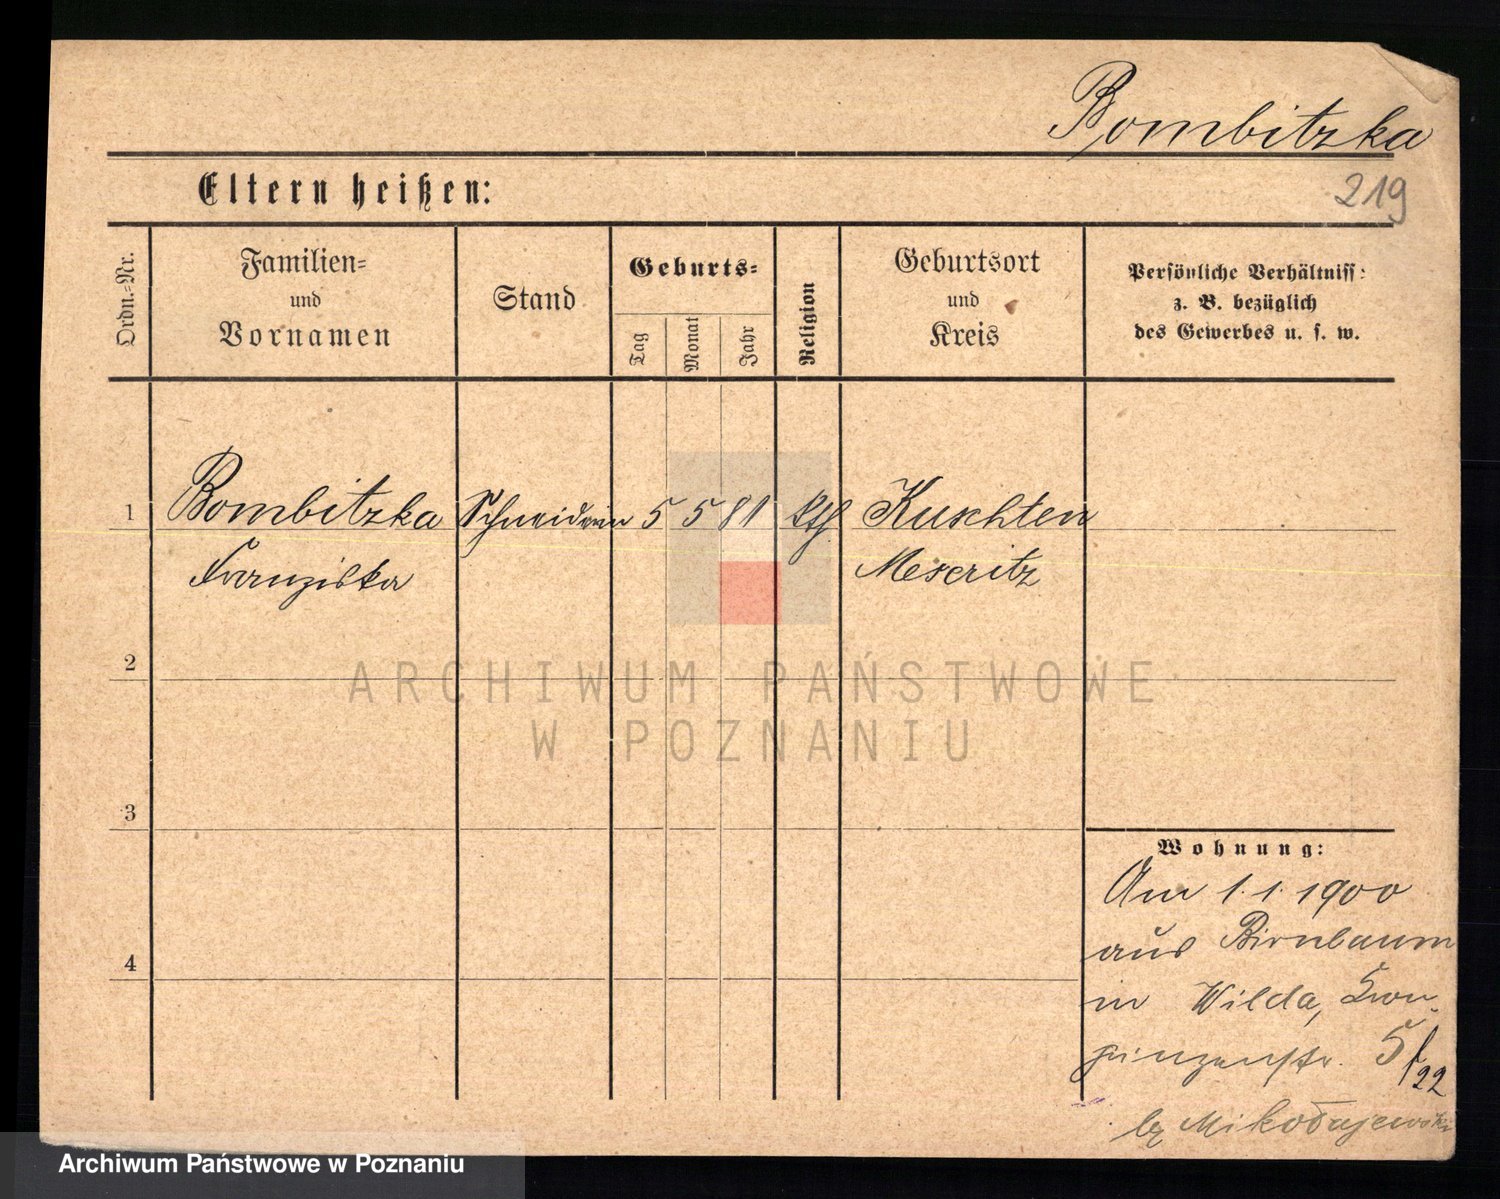 Bombitzka
219
Eltern heißen:
Ordn.=Nr.
Familien=
und
Vornamen
Stand
Geburts=
Tag
Monat
Jahr
Religion
Geburtsort
und
Kreis
Persönliche Verhältniss:
z. B. bezüglich
des Gewerbes u. s. w.
1
Bombitzka Schneiderin 5 5 81 kth. Kuschten
Franziska Meseritz
2
3
4
Wohnung:
Am 1.1.1900
aus Birnbaum
in Wilda, Kron-
prinzenstr. 5/22
bz Mikołajewski
ARCHIWUM PAŃSTWOWE
W POZNANIU
Archiwum Państwowe w Poznaniu